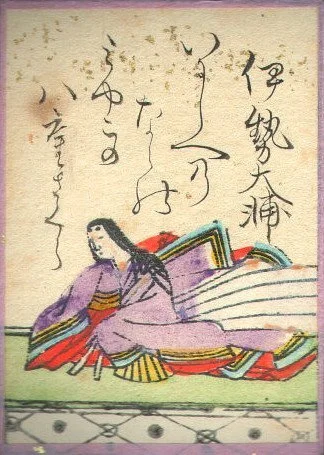 伊勢大輔
いにしへ乃
なら能
みやこの
八重さくら